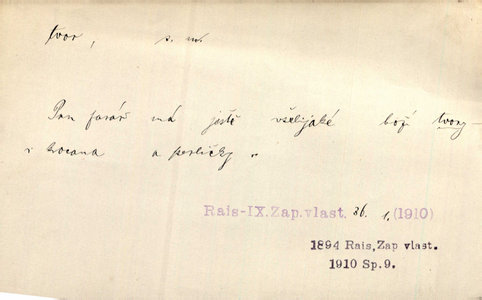 tvor, s. m.
Pan farář má ještě všelijaké boží tvory –
i krocana a perličky.
Rais-IX.Zap.vlast. 36. 1. (1910)
1894 Rais,Zap vlast.
1910 Sp.9.